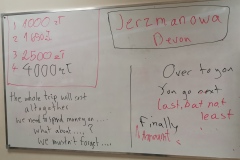 1. 1000 zł
2. 1690 zł
3. 2500 zł
4. 4000 zł
the whole trip will cost
altogether
we need to spend money on....
what about.....?
we mustn't forget....
Jerzmanowa
Devon
Over to you
You go next
last, but not
least
Finally